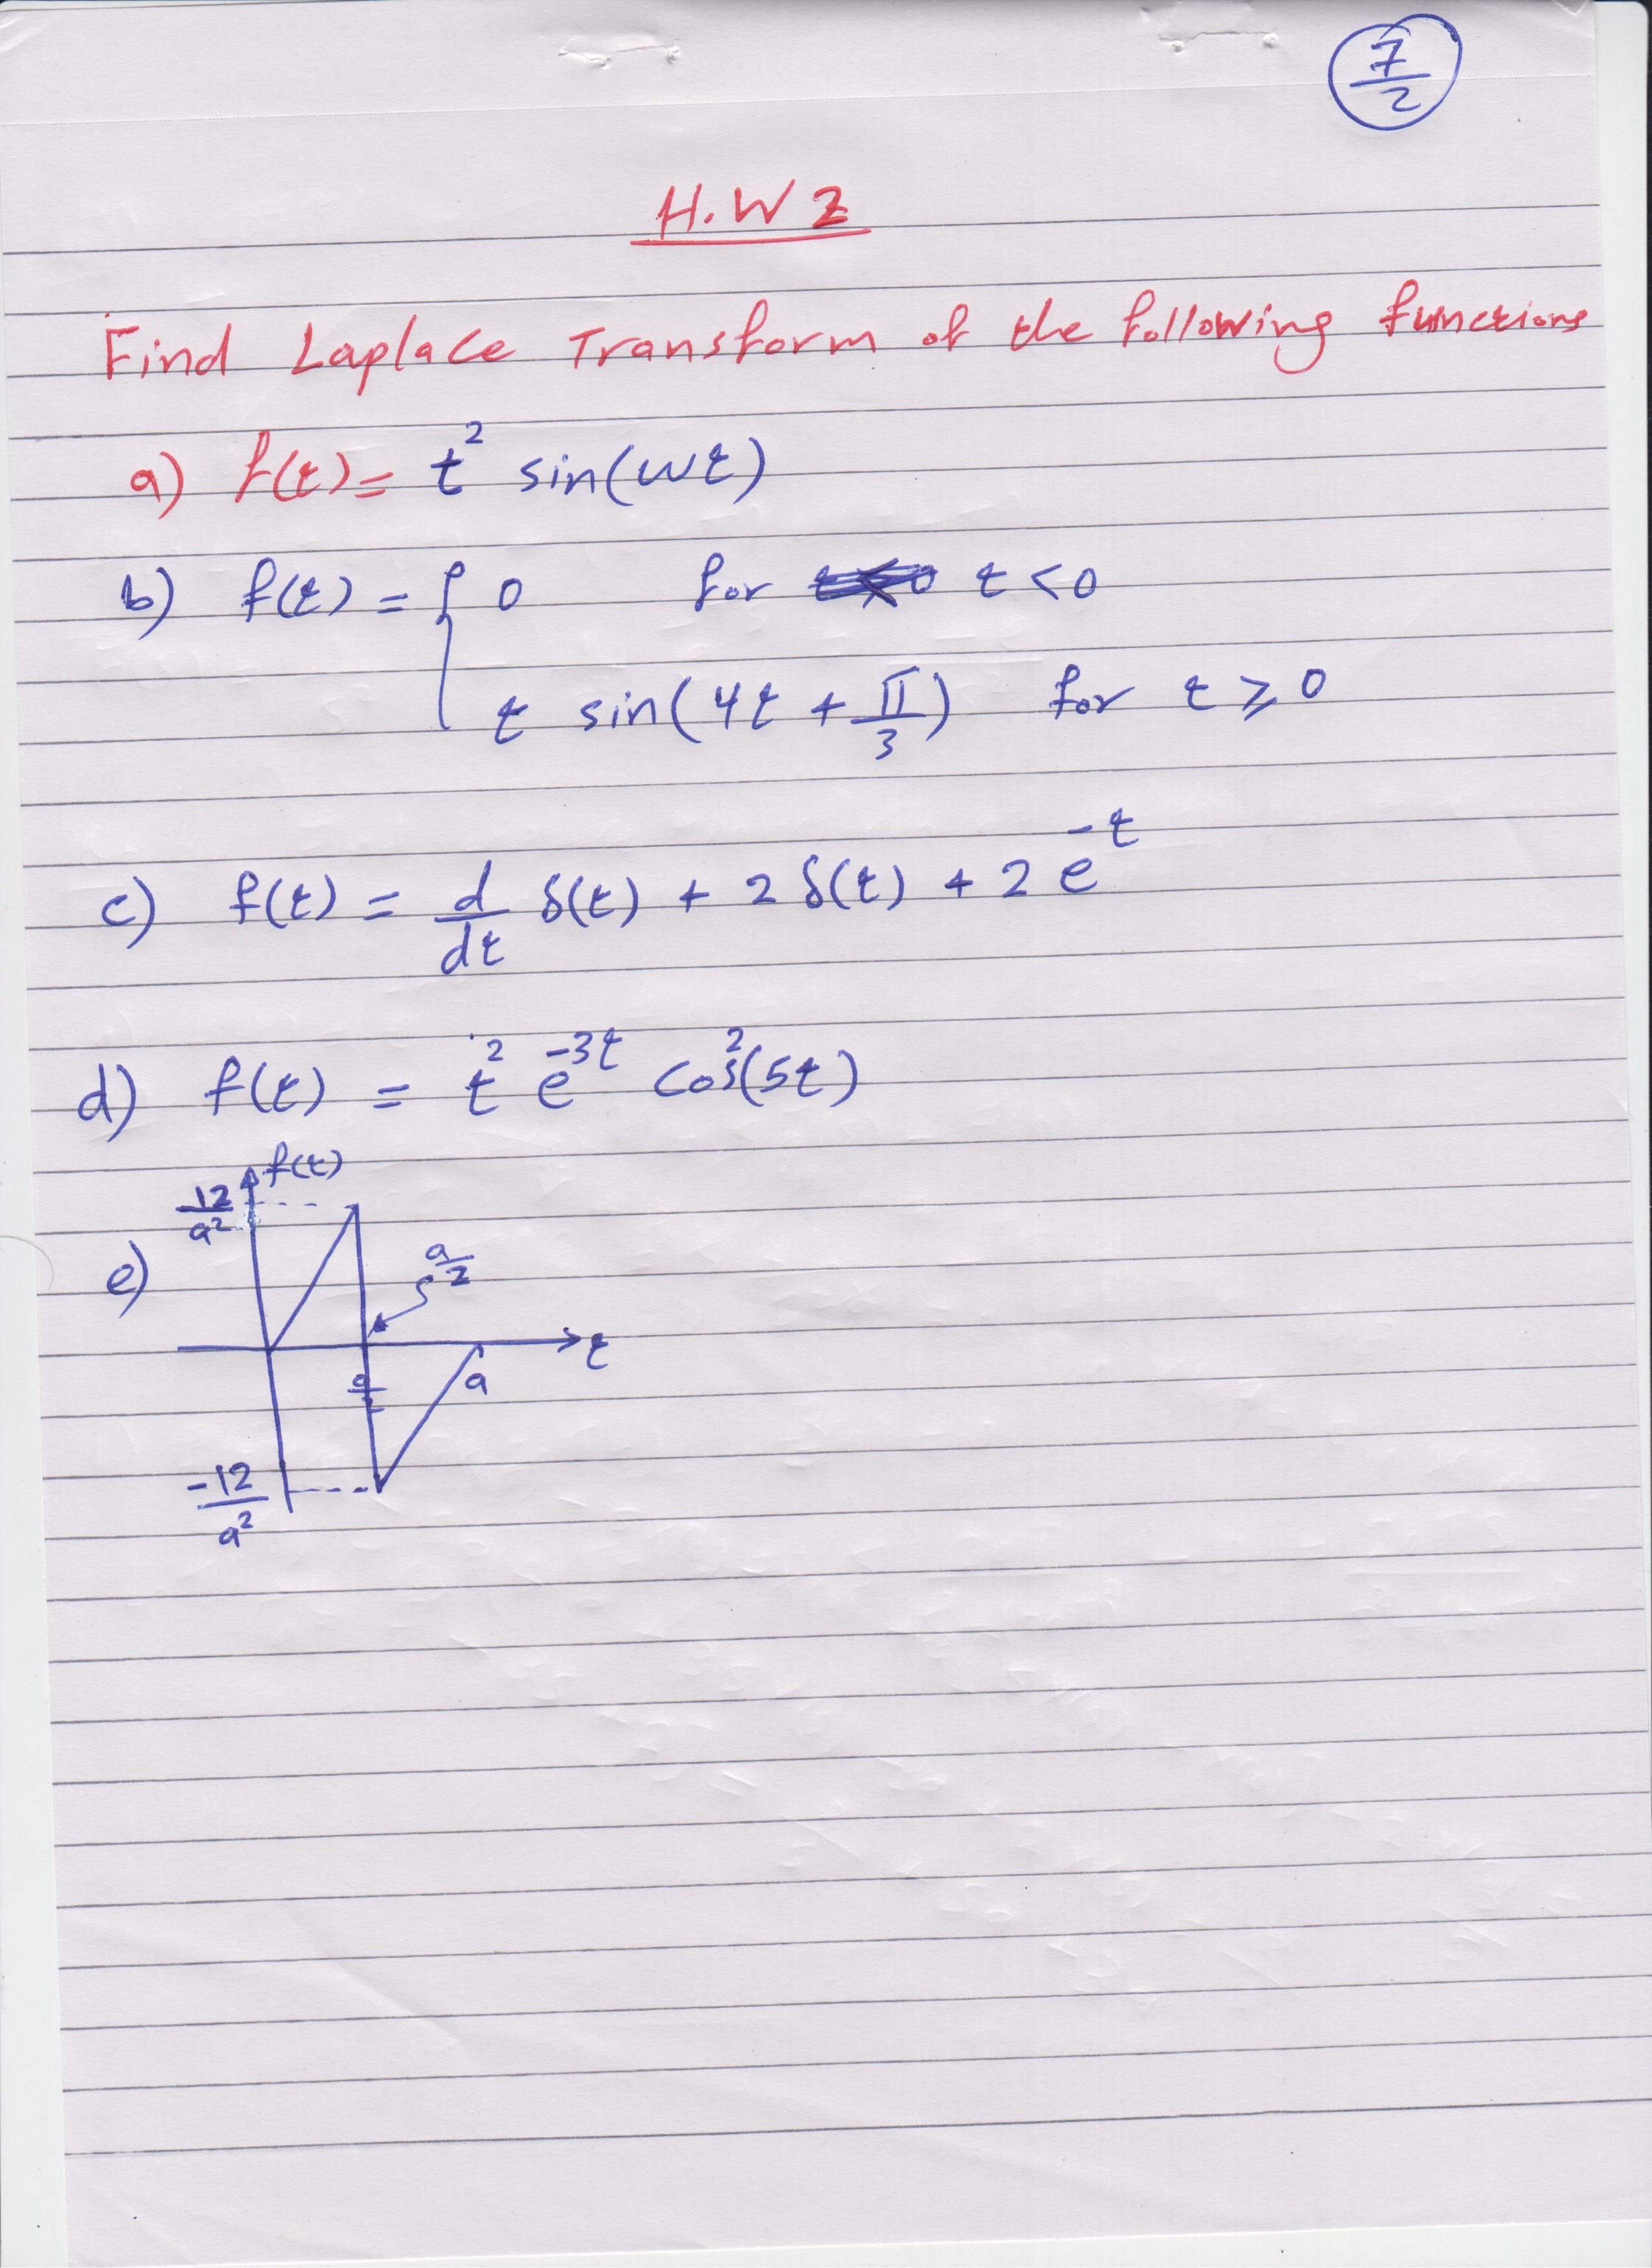 7/2
H.W 2
Find Laplace Transform of the following functions
a) f(t) = t² sin(wt)
b) f(t) = { 0 for t < 0
t sin(4t + π/3) for t ⩾ 0
c) f(t) = d/dt δ(t) + 2 δ(t) + 2 e^-t
d) f(t) = t² e^-3t cos²(5t)
f(t)
12/a²
e)
a/2
t
a
-12/a²